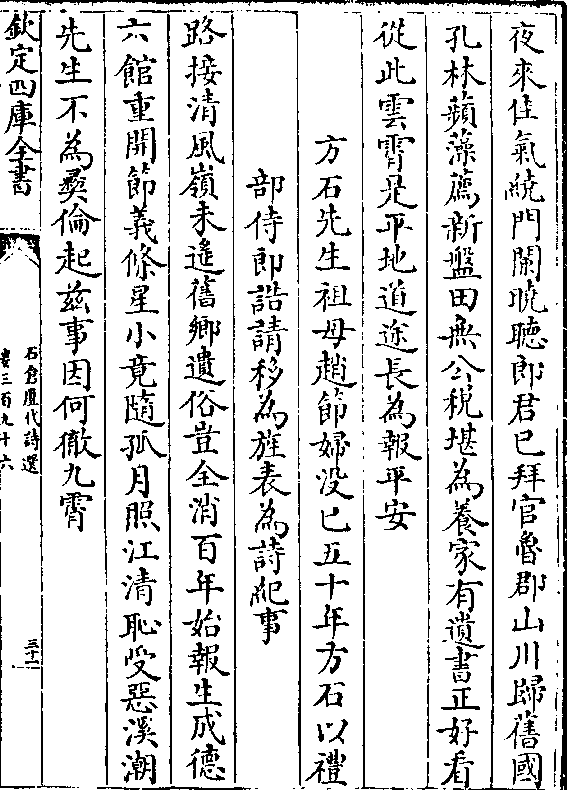 夜來佳氣繞門闌曉聴郎君已拜官魯郡山川歸舊國
孔林蘋藻薦新盤田無公稅堪為養家有遺書正好看
從此雲霄是平地道途長為報平安
方石先生祖母趙節婦没已五十年方石以禮
部侍郎誥請移為旌表為詩紀事
路接清風嶺未遙舊鄉遺俗豈全消百年始報生成德
六館重開節義條星小竟隨孤月照江清恥受惡溪潮
先生不為彛倫起兹事因何徹九霄
欽定四庫全書
石倉歷代詩選
卷三百九十六
三十二